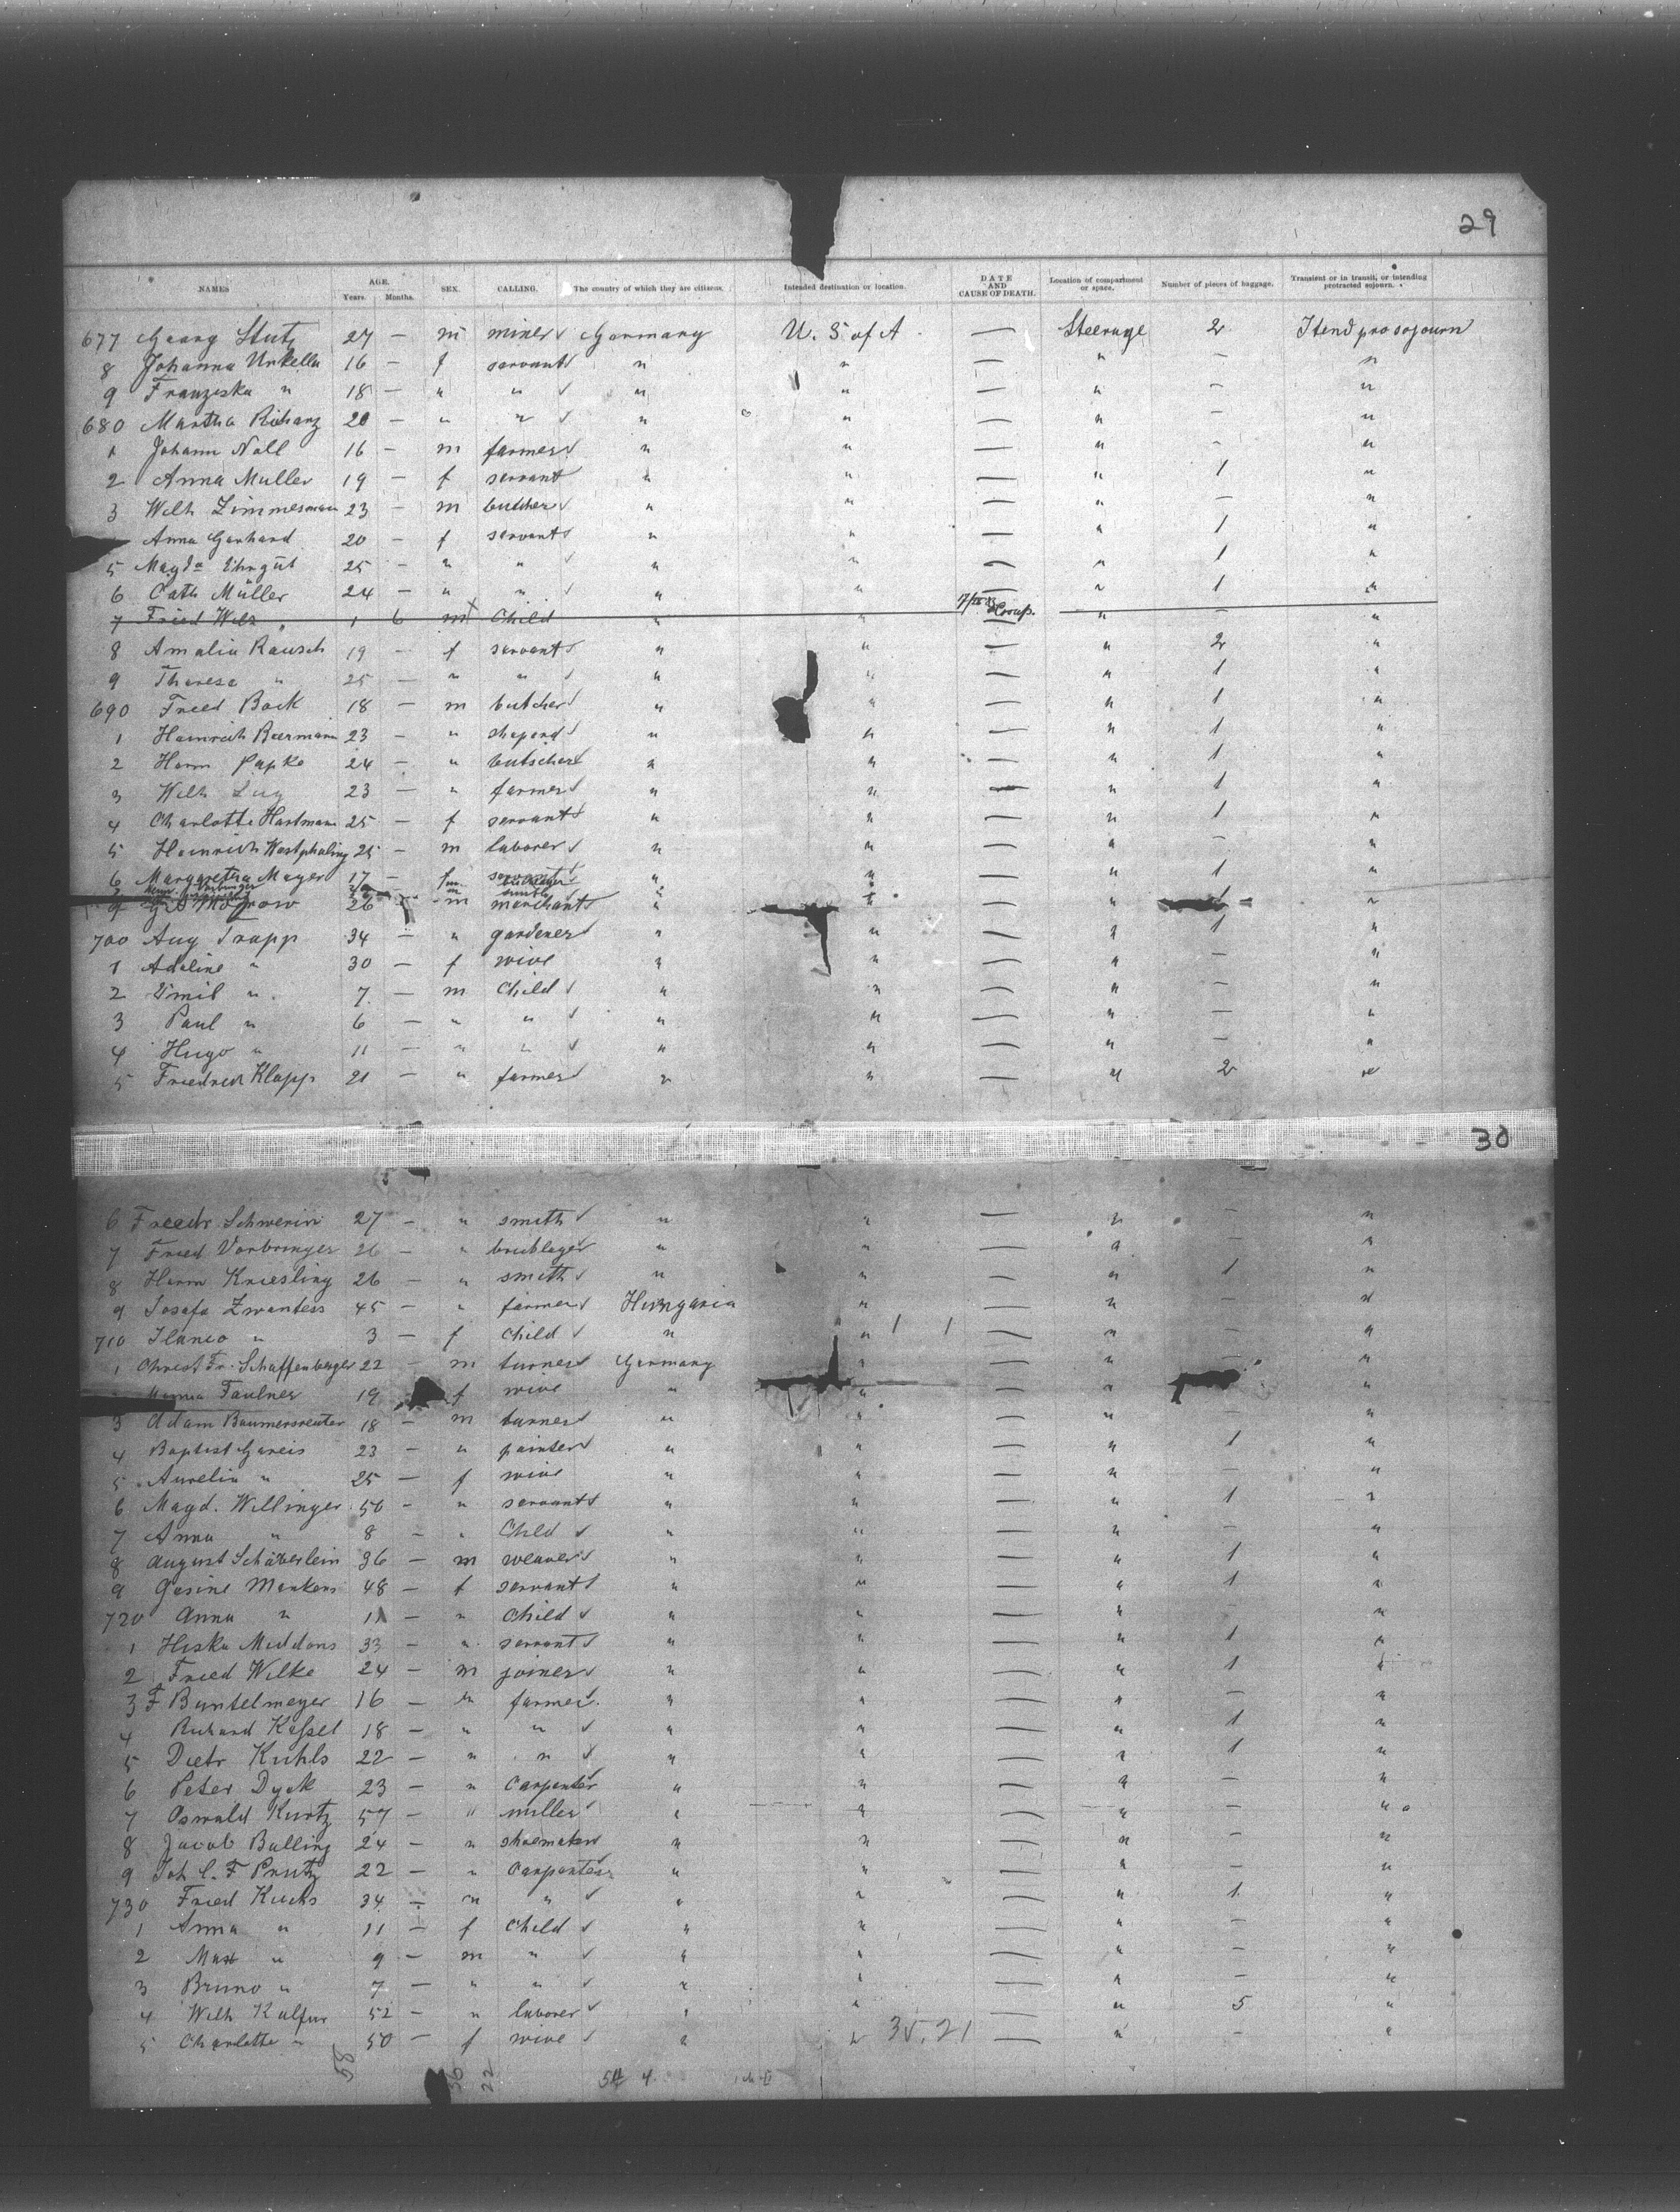 29
NAMES AGE. Years. Months. SEX. CALLING. The country of which they are citizens. Intended destination or location. DATE AND CAUSE OF DEATH. Location of compartment or space. Number of pieces of baggage. Transient or in transit, or intending protracted sojourn.
677 Georg Stutz 27 — m miner Germany U. S of A — Steerage 2 Itend pro sojourn
8 Johanna Unkella 16 — f servant " " — " — "
9 Franziska " 18 — " " " " — " — "
680 Martha Richarz 20 — " " " " — " — "
1 Johann Noll 16 — m farmer " " — " — "
2 Anna Muller 19 — f servant " " — " 1 "
3 Wilh Zimmerman 23 — m butcher " " — " — "
Anna Gerhard 20 — f servant " " — " 1 "
5 Magda Ehrgut 25 — " " " " — " 1 "
6 Cath Müller 24 — " " " " — " 1 "
7 Fried Welz " 1 6 m Child " " Croup. " — "
8 Amalia Rausch 19 — f servant " " — " 2 "
9 Theresa " 25 — " " " " — " 1 "
690 Fried Bock 18 — m butcher " " — " 1 "
1 Heinrich Biermann 23 — " sheperd " " — " 1 "
2 Herm Papke 24 — " butscher " " — " 1 "
3 Wilh Lug 23 — " farmer " " — " 1 "
4 Charlotte Hartmann 25 — f servant " " — " 1 "
5 Heinrich Westphaling 25 — m laborer " " — " — "
6 Margaretha Mayer 17 — f servant " " — " 1 "
9 Morrow 26 — m merchant " " " "
700 Aug Trapp 34 — " gardener " " — " 1 "
1 Adeline " 30 — f wive " " — " — "
2 Emil " 7 — m Child " " — " — "
3 Paul " 6 — " " " " — " — "
4 Hugo " 11 — " " " " — " — "
5 Friedrich Klapp 21 — " farmer " " — " 2 "
30
6 Friedr Schwerin 27 — " smith " " — " — "
7 Fried Vorbringer 26 — " bricklager " " — " — "
8 Herm Kniesling 26 — " smith " " — " 1 "
9 Josefa Zwantess 45 — " farmer Hungaria " — " — "
710 Ilanco " 3 — f Child " " — " — "
1 Christ Fr. Schaffenberger 22 — m turner Germany " — " — "
Faulner 19 f wive " " " "
3 Adam Baumersreuter 18 — m turner " " — " — "
4 Baptist Gareis 23 — " painter " " — " 1 "
5 Aurelia " 25 — f wive " " — " — "
6 Magd. Willinger 50 — " servant " " — " 1 "
7 Anna " 8 — " Child " " — " — "
8 August Schäberlein 36 — m weaver " " — " 1 "
9 Gesine Mankens 48 — f servant " " — " 1 "
720 Anna " 11 — " Child " " — " — "
1 Hiska Middons 33 — " servant " " — " 1 "
2 Fried Wilke 24 — m joiner " " — " 1 "
3 F Buntelmeyer 16 — " farmer " " — " — "
4 Richard Kassel 18 — " " " " — " 1 "
5 Dietr Kuhls 22 — " " " " — " 1 "
6 Peter Dyck 23 — " Carpenter " " — " — "
7 Oswald Kurtz 57 — " miller " " — " — "
8 Jacob Balling 24 — " shoemaker " " — " — "
9 Joh C. F Prutz 22 — " Carpenter " " — " — "
730 Fried Kucks 34 — m " " " — " 1 "
1 Anna " 11 — f Child " " — " — "
2 Max " 9 — m " " " — " — "
3 Bruno " 7 — " " " " — " — "
4 Wilh Kalfur 52 — " laborer " " — " 5 "
5 Charlotte " 50 — f wive " " 35.21 — " — "
58 36 22 54 4